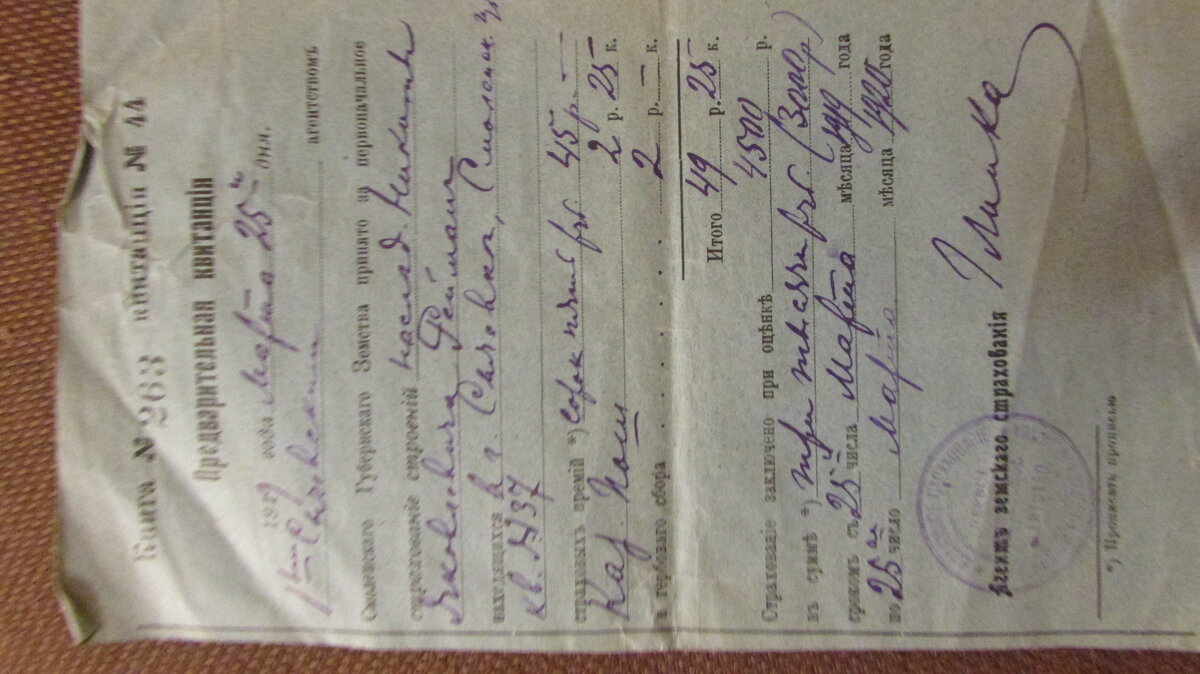 Книга № 263 квитанція № 44
Предварительная квитанція
191 года Марта 25 дня.
Сычевскимъ агентствомъ
Смоленскаго Губернскаго Земства принято за первоначальное
страхованіе строеній наслѣд. Никиты
Яковлевича Реймана
находящихся въ г. Сычевкѣ, Смоленск.
кв. № 37
страховыхъ премій *) сорокъ пять рб. 45 р. —
Каз. Пош 2 р. 25 к.
и гербоваго сбора 2 р. — к.
Итого 49 р. 25 к.
Страхованіе заключено при оцѣнкѣ 4500 р.
въ суммѣ *) три тысячи рб. (3000 р)
срокомъ съ 25 числа Марта мѣсяца 1919 года
по 25 число Марта мѣсяца 1920 года
Агентъ земскаго страхованія
*) Прописать прописью